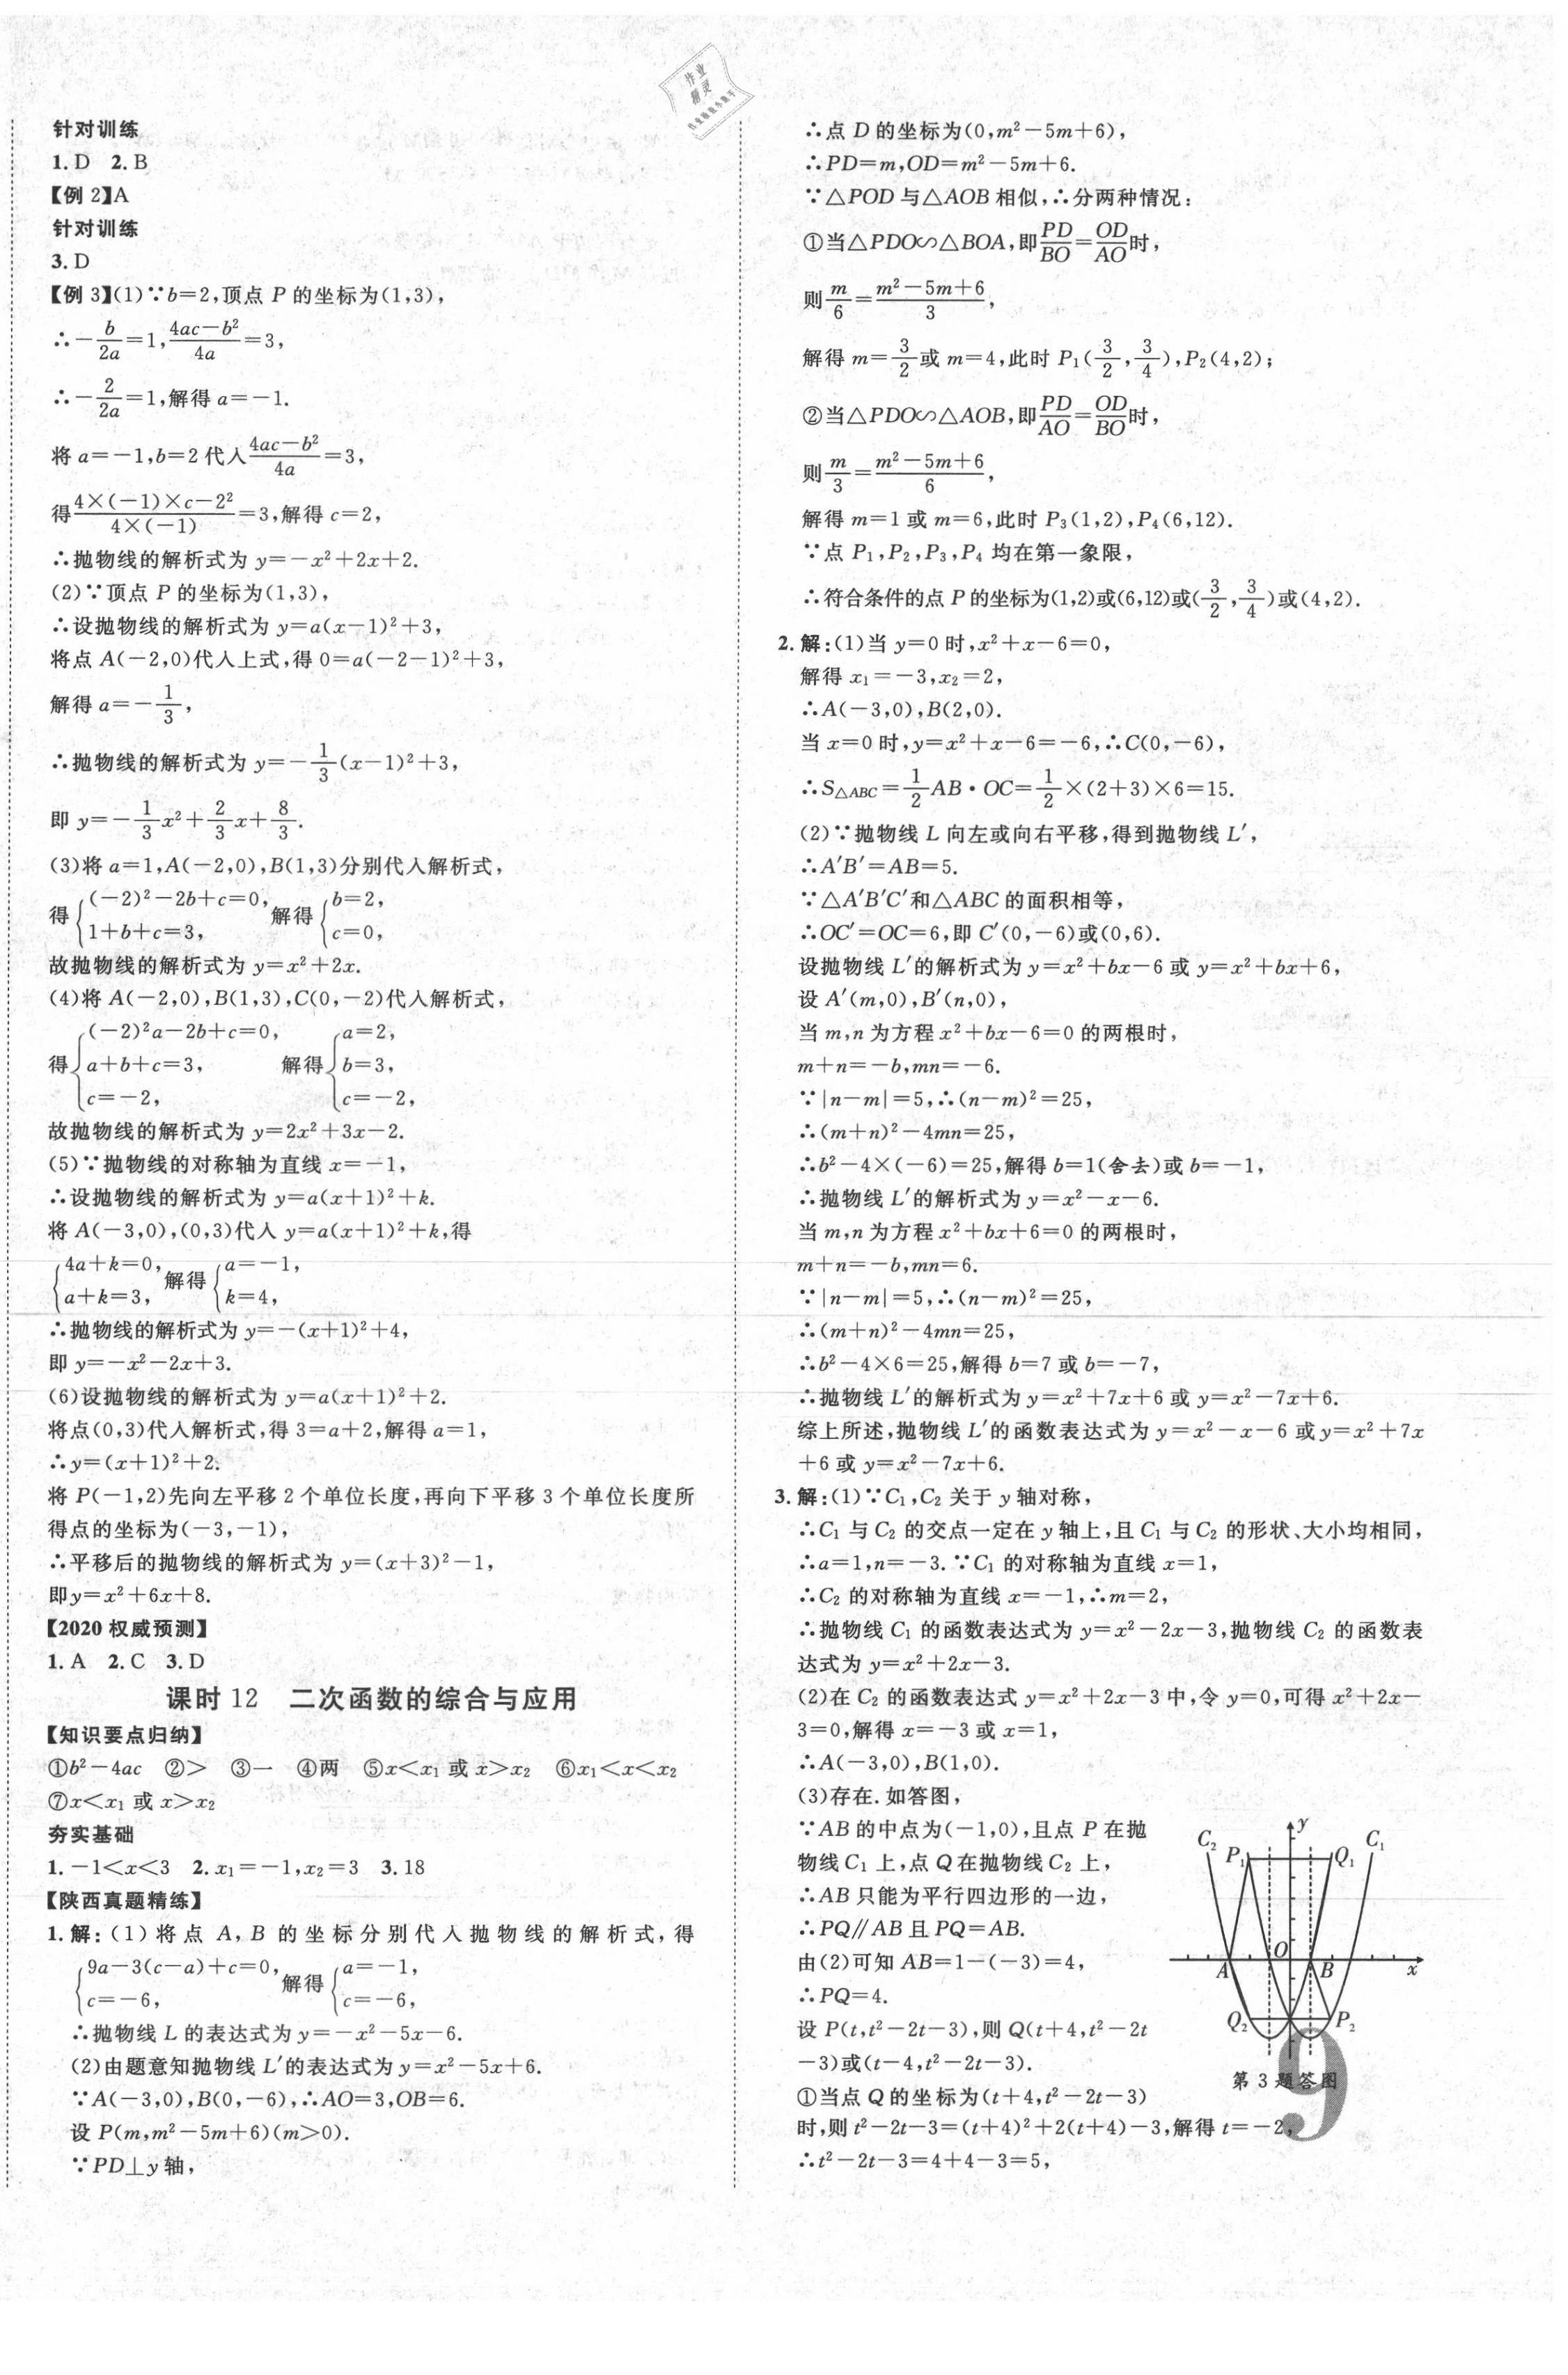 作业
精灵
针对训练
1. D 2. B
【例 2】A
针对训练
3. D
【例 3】(1)∵b=2,顶点 P 的坐标为(1,3),
∴-b/2a=1,(4ac-b²)/4a=3,
∴-2/2a=1,解得 a=-1.
将 a=-1,b=2 代入(4ac-b²)/4a=3,
得(4×(-1)×c-2²)/(4×(-1))=3,解得 c=2,
∴抛物线的解析式为 y=-x²+2x+2.
(2)∵顶点 P 的坐标为(1,3),
∴设抛物线的解析式为 y=a(x-1)²+3,
将点 A(-2,0)代入上式,得 0=a(-2-1)²+3,
解得 a=-1/3,
∴抛物线的解析式为 y=-1/3(x-1)²+3,
即 y=-1/3x²+2/3x+8/3.
(3)将 a=1,A(-2,0),B(1,3)分别代入解析式,
得{(-2)²-2b+c=0, 1+b+c=3, 解得{b=2, c=0,
故抛物线的解析式为 y=x²+2x.
(4)将 A(-2,0),B(1,3),C(0,-2)代入解析式,
得{(-2)²a-2b+c=0, a+b+c=3, c=-2, 解得{a=2, b=3, c=-2,
故抛物线的解析式为 y=2x²+3x-2.
(5)∵抛物线的对称轴为直线 x=-1,
∴设抛物线的解析式为 y=a(x+1)²+k.
将 A(-3,0),(0,3)代入 y=a(x+1)²+k,得
{4a+k=0, a+k=3, 解得{a=-1, k=4,
∴抛物线的解析式为 y=-(x+1)²+4,
即 y=-x²-2x+3.
(6)设抛物线的解析式为 y=a(x+1)²+2.
将点(0,3)代入解析式,得 3=a+2,解得 a=1,
∴y=(x+1)²+2.
将 P(-1,2)先向左平移 2 个单位长度,再向下平移 3 个单位长度所
得点的坐标为(-3,-1),
∴平移后的抛物线的解析式为 y=(x+3)²-1,
即 y=x²+6x+8.
【2020 权威预测】
1. A 2. C 3. D
课时 12 二次函数的综合与应用
【知识要点归纳】
①b²-4ac ②> ③一 ④两 ⑤x<x₁ 或 x>x₂ ⑥x₁<x<x₂
⑦x<x₁ 或 x>x₂
夯实基础
1. -1<x<3 2. x₁=-1,x₂=3 3. 18
【陕西真题精练】
1. 解:(1)将点 A,B 的坐标分别代入抛物线的解析式,得
{9a-3(c-a)+c=0, c=-6, 解得{a=-1, c=-6,
∴抛物线 L 的表达式为 y=-x²-5x-6.
(2)由题意知抛物线 L′的表达式为 y=x²-5x+6.
∵A(-3,0),B(0,-6),∴AO=3,OB=6.
设 P(m,m²-5m+6)(m>0).
∵PD⊥y 轴,
∴点 D 的坐标为(0,m²-5m+6),
∴PD=m,OD=m²-5m+6.
∵△POD 与△AOB 相似,∴分两种情况:
①当△PDO∽△BOA,即PD/BO=OD/AO时,
则m/6=(m²-5m+6)/3,
解得 m=3/2或 m=4,此时 P₁(3/2,3/4),P₂(4,2);
②当△PDO∽△AOB,即PD/AO=OD/BO时,
则m/3=(m²-5m+6)/6,
解得 m=1 或 m=6,此时 P₃(1,2),P₄(6,12).
∵点 P₁,P₂,P₃,P₄ 均在第一象限,
∴符合条件的点 P 的坐标为(1,2)或(6,12)或(3/2,3/4)或(4,2).
2. 解:(1)当 y=0 时,x²+x-6=0,
解得 x₁=-3,x₂=2,
∴A(-3,0),B(2,0).
当 x=0 时,y=x²+x-6=-6,∴C(0,-6),
∴S△ABC=1/2AB·OC=1/2×(2+3)×6=15.
(2)∵抛物线 L 向左或向右平移,得到抛物线 L′,
∴A′B′=AB=5.
∵△A′B′C′和△ABC 的面积相等,
∴OC′=OC=6,即 C′(0,-6)或(0,6).
设抛物线 L′的解析式为 y=x²+bx-6 或 y=x²+bx+6,
设 A′(m,0),B′(n,0),
当 m,n 为方程 x²+bx-6=0 的两根时,
m+n=-b,mn=-6.
∵|n-m|=5,∴(n-m)²=25,
∴(m+n)²-4mn=25,
∴b²-4×(-6)=25,解得 b=1(舍去)或 b=-1,
∴抛物线 L′的解析式为 y=x²-x-6.
当 m,n 为方程 x²+bx+6=0 的两根时,
m+n=-b,mn=6.
∵|n-m|=5,∴(n-m)²=25,
∴(m+n)²-4mn=25,
∴b²-4×6=25,解得 b=7 或 b=-7,
∴抛物线 L′的解析式为 y=x²+7x+6 或 y=x²-7x+6.
综上所述,抛物线 L′的函数表达式为 y=x²-x-6 或 y=x²+7x
+6 或 y=x²-7x+6.
3. 解:(1)∵C₁,C₂ 关于 y 轴对称,
∴C₁ 与 C₂ 的交点一定在 y 轴上,且 C₁ 与 C₂ 的形状、大小均相同,
∴a=1,n=-3.∵C₁ 的对称轴为直线 x=1,
∴C₂ 的对称轴为直线 x=-1,∴m=2,
∴抛物线 C₁ 的函数表达式为 y=x²-2x-3,抛物线 C₂ 的函数表
达式为 y=x²+2x-3.
(2)在 C₂ 的函数表达式 y=x²+2x-3 中,令 y=0,可得 x²+2x-
3=0,解得 x=-3 或 x=1,
∴A(-3,0),B(1,0).
(3)存在.如答图,
∵AB 的中点为(-1,0),且点 P 在抛
物线 C₁ 上,点 Q 在抛物线 C₂ 上,
∴AB 只能为平行四边形的一边,
∴PQ∥AB 且 PQ=AB.
由(2)可知 AB=1-(-3)=4,
∴PQ=4.
设 P(t,t²-2t-3),则 Q(t+4,t²-2t
-3)或(t-4,t²-2t-3).
①当点 Q 的坐标为(t+4,t²-2t-3)
时,则 t²-2t-3=(t+4)²+2(t+4)-3,解得 t=-2,
∴t²-2t-3=4+4-3=5,
y
C₂ P₁ Q₁ C₁
A O B x
Q₂ P₂
第 3 题答图
9